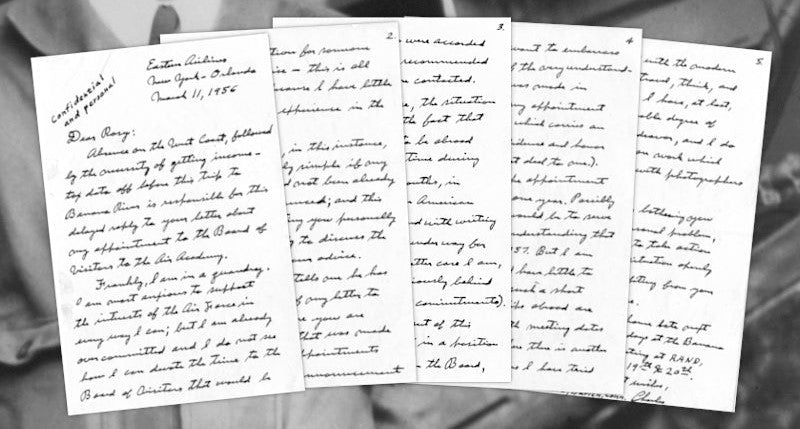 Confidential
and personal
Eastern Airlines
New York - Orlando
March 11, 1956
Dear Rosy:
Absence on the West Coast, followed
by the necessity of getting income-
tax data off before this trip to
Banana River is responsible for this
delayed reply to your letter about
my appointment to the Board of
Visitors to the Air Academy.
Frankly, I am in a quandry.
I am most anxious to support
the interests of the Air Force in
every way I can; but I am already
over committed and I do not see
how I can devote the time to the
Board of Visitors that would be
2.
tion for someone
— this is all
I have little
experience in the
, in this instance,
simple if my
not been already
; and this
you personally
to discuss the
advice.
tells me he has
of my letter to
you are
that was made
appointments
announcement
3.
were accorded
recommended
contacted.
, the situation
the fact that
to be abroad
time during
months, in
American
and with writing
under way for
care I am,
behind
commitments).
of this
in a position
the Board,
4.
want to embarrass
of the very understand-
was made in
my appointment
which carries an
and honor
deal to me).
the appointment
one year. Possibly
would be to serve
understanding that
57. But I am
have little to
such a short
abroad are
meeting dates
this is another
I have tried
5.
with the modern
travel, think, and
I have, at last,
degree of
, and I do
on work which
with photographers
bothering you
personal problem,
to take action
situation openly
from you
days at the Banana
at RAND,
19th & 20th.
wishes,
Charles